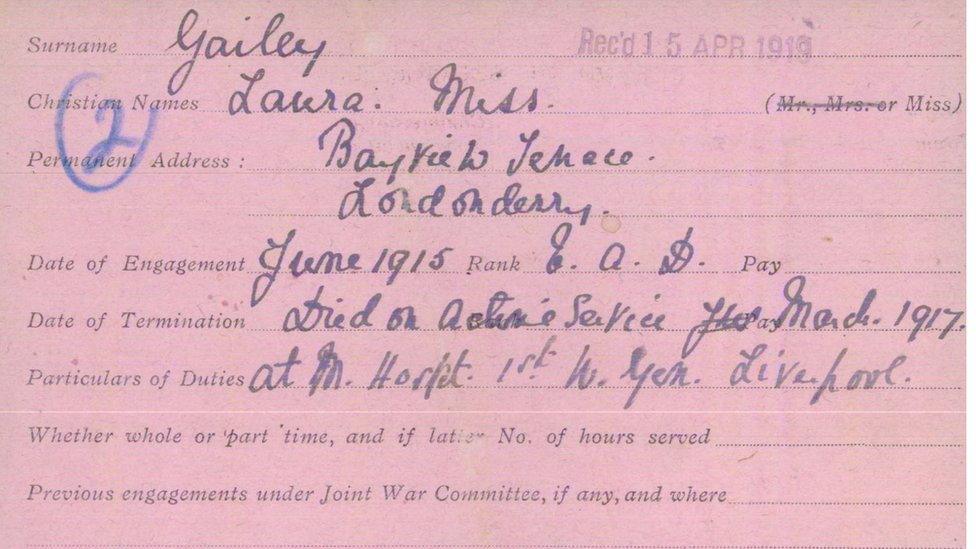 Surname Gailey Rec'd 15 APR 1919
Christian Names Laura. Miss. (Mr., Mrs. or Miss)
2
Permanent Address: Bayview Terrace.
Londonderry.
Date of Engagement June 1915 Rank E. A. D. Pay
Date of Termination Died on Active Service Pay March. 1917.
Particulars of Duties at M. Hospt. 1st W. Gen. Liverpool.
Whether whole or part time, and if latter No. of hours served
Previous engagements under Joint War Committee, if any, and where